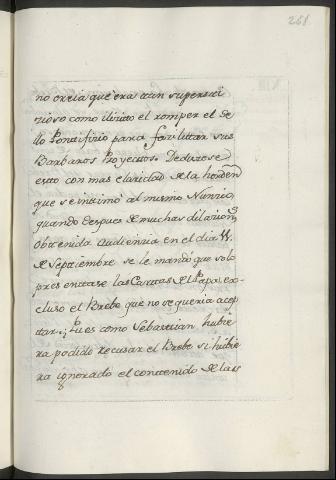 261.
no creia que era tan supersti
cioso como ilicito el romper el Se
llo Pontificio para facilitar sus
Barbaros Proyectos. Deducese
esto con mas claridad de la horden
que se intimó al mismo Nunnio
quando despues de muchas dilacion.s
obtenida Audiencia en el dia
de Septiembre se le mandó que solo
presentase las Cartas del Papa, ex-
cluso el Brebe que no se queria acep
tar. Pues como Sebastian hubie
ra podido recusar el Brebe si hubie
ra ignorado el contenido de las